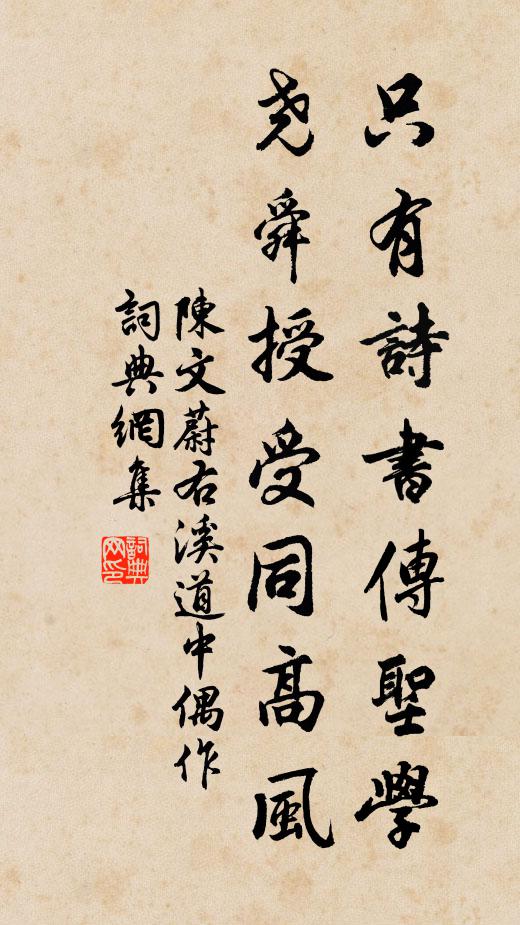 只有詩書傳聖學
堯舜授受同高風
陳文蔚右溪道中偶作
詞典網集
詞典網印